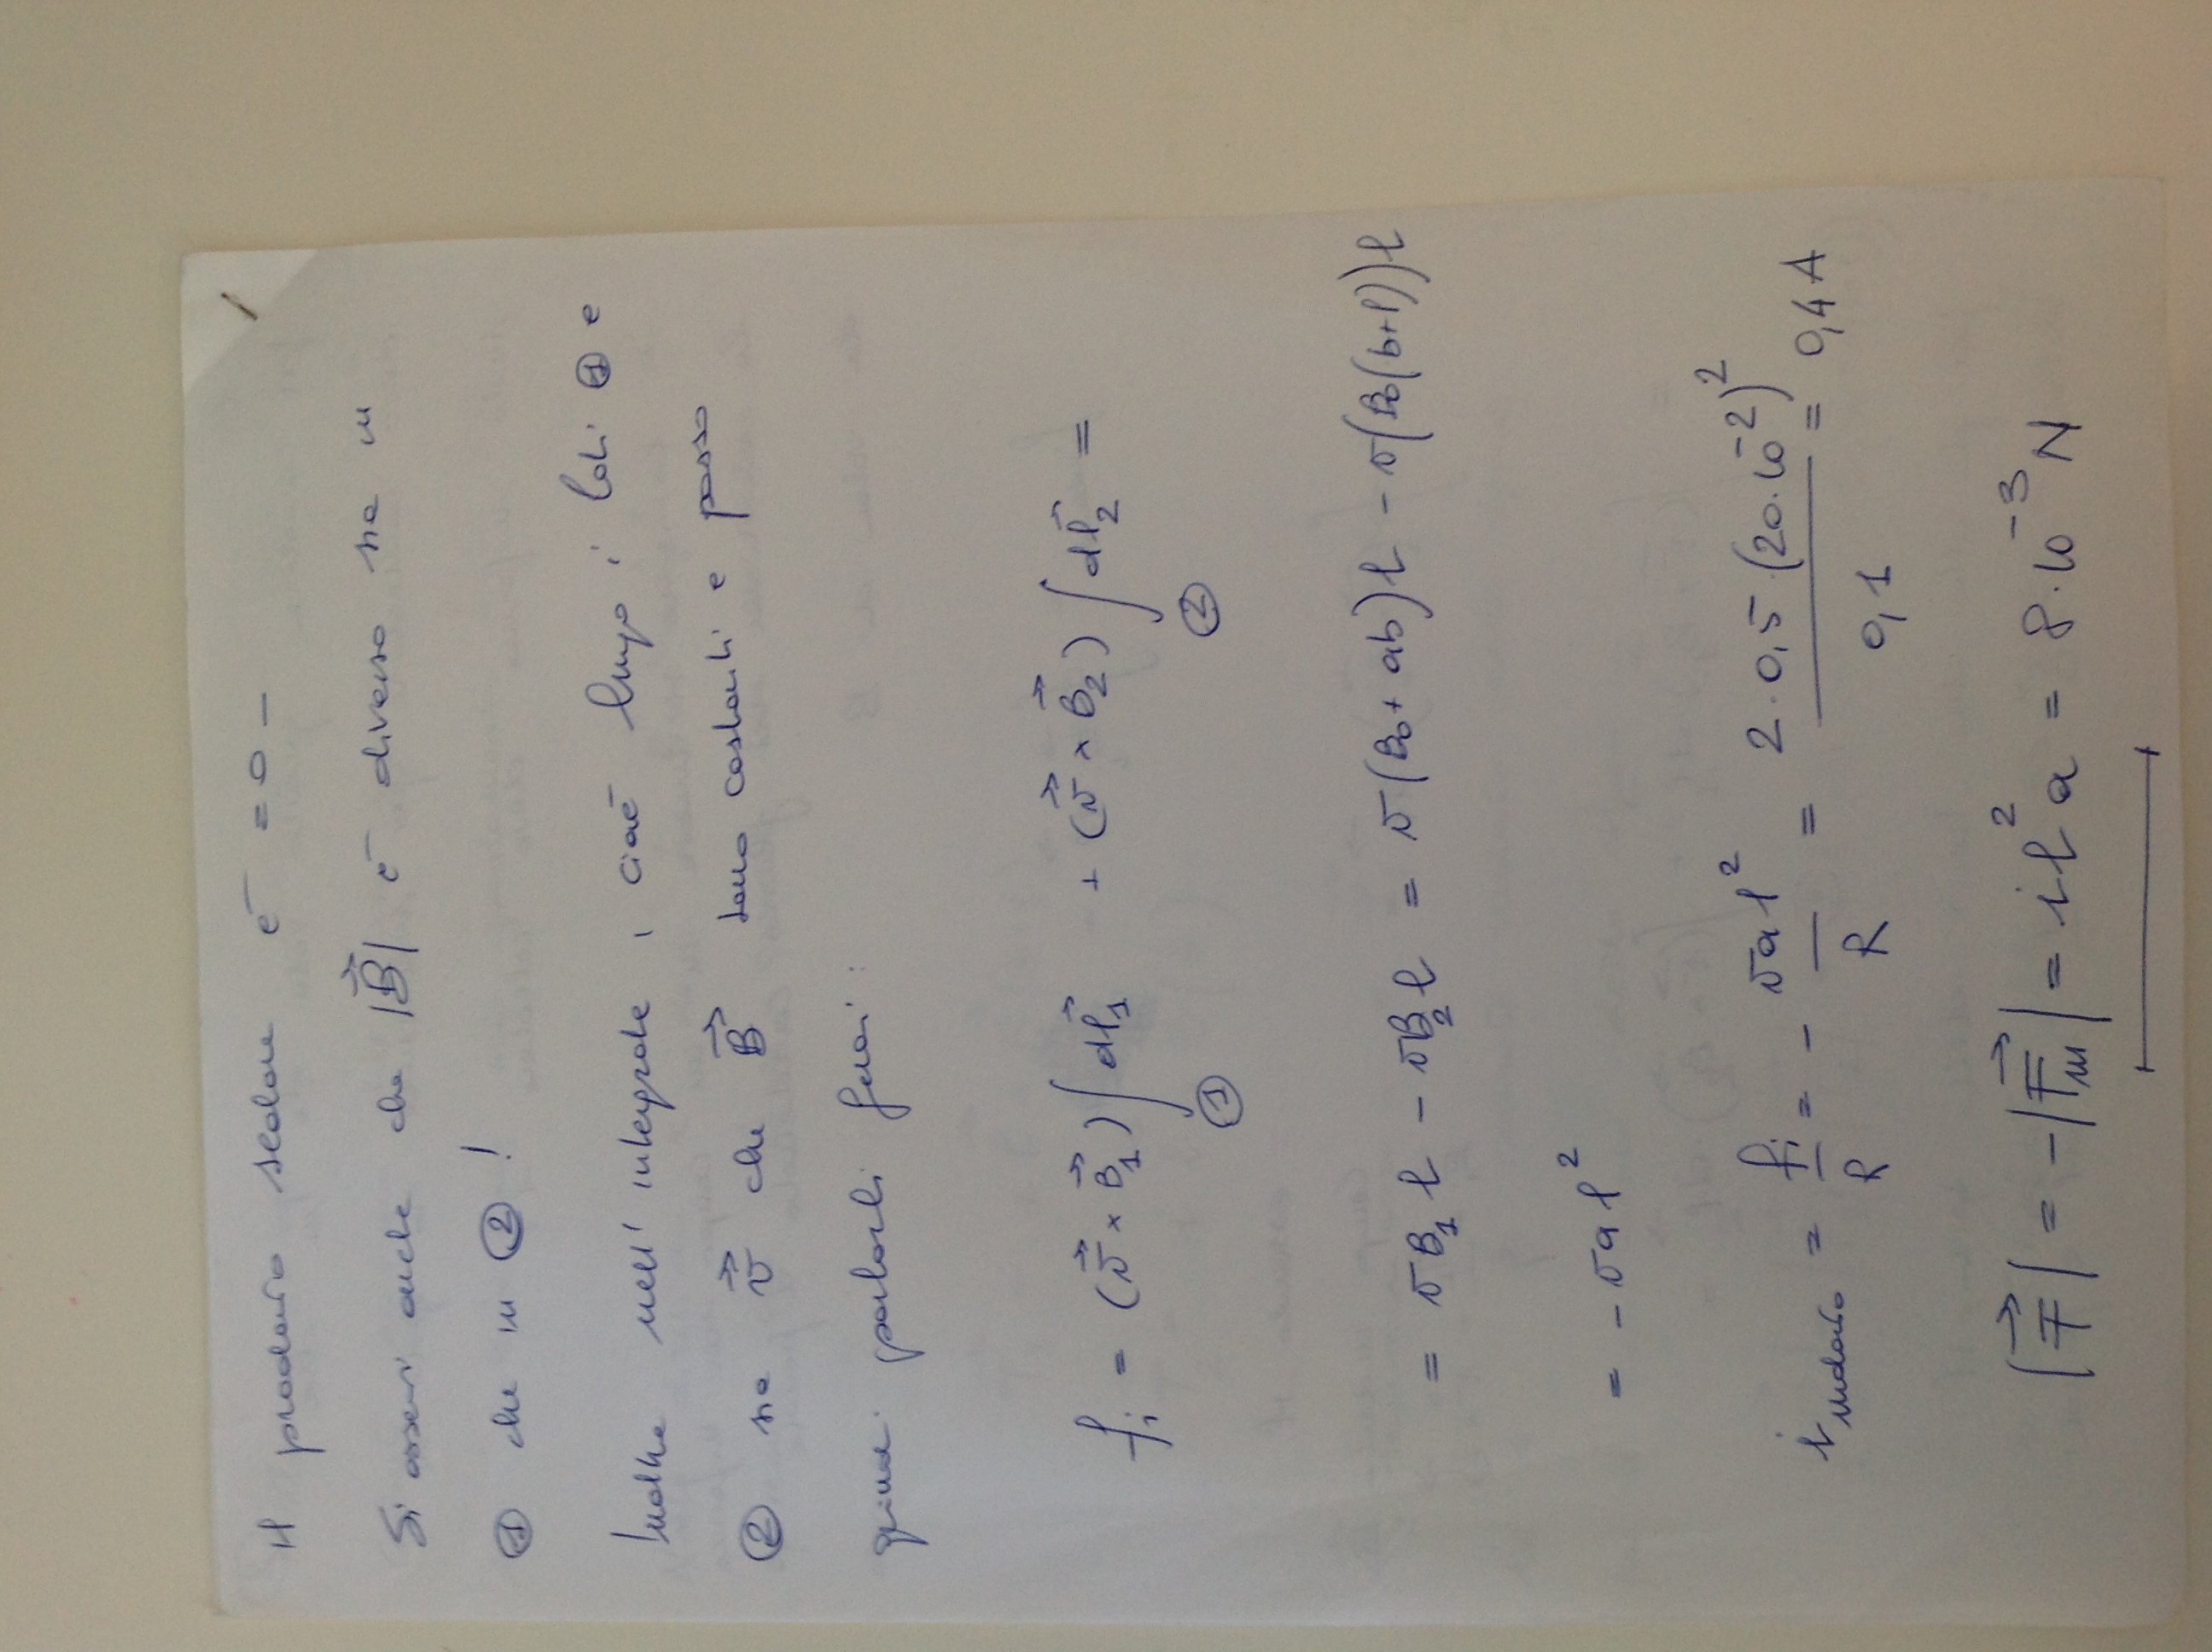 Il prodotto scalare è = 0 –
Si osservi anche che |B⃗| è diverso sia in
① che in ② !
Inoltre nell' integrale , cioè lungo i lati ① e
② sia v⃗ che B⃗ sono costanti e posso
quindi portarli fuori :
fᵢ = (v⃗ × B⃗₁) ∫① dl⃗₁ + (v⃗ × B⃗₂) ∫② dl⃗₂ =
= vB₁ l – vB₂ l = v(B₀ + ab) l – v(B₀(b+l)) l
= – v a l²
i indotto = fᵢ/R = – v a l²/R = 2 · 0,5 · (20·10⁻²)²/0,1 = 0,4 A
|F⃗| = –|F⃗m| = i l² a = 8·10⁻³ N